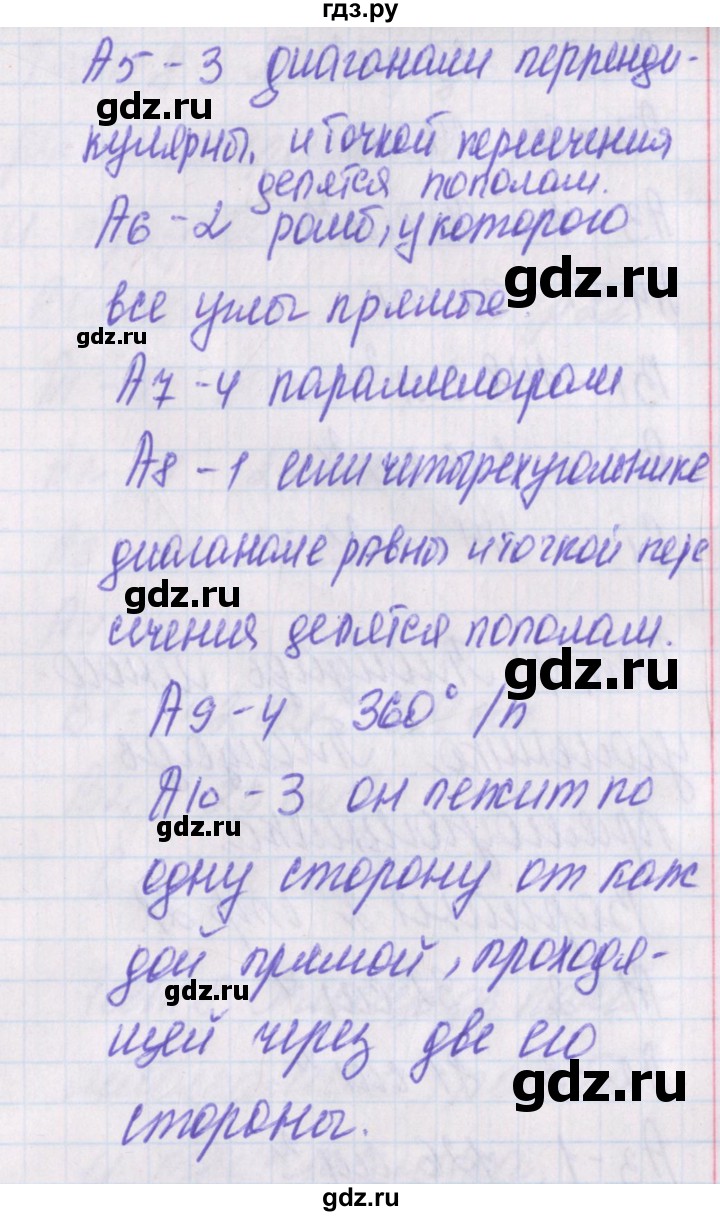 гдз.ру
А5 - 3 диагонали перпенди-
gdz.ru
кулярны, и точкой пересечения
делятся пополам.
А6 - 2 ромб, у которого
gdz.ru
все углы прямые.
gdz.ru
А7 - 4 параллелограм
А8 - 1 если четырехугольнике
диаганале равны и точкой пере
gdz.ru
сечения делятся пополам.
gdz.ru
А9 - 4 360° / n
А10 - 3 он лежит по
gdz.ru
одну сторону от каж
дой прямой, проходя-
gdz.ru
щей через две его
gdz.ru
стороны.
gdz.ru